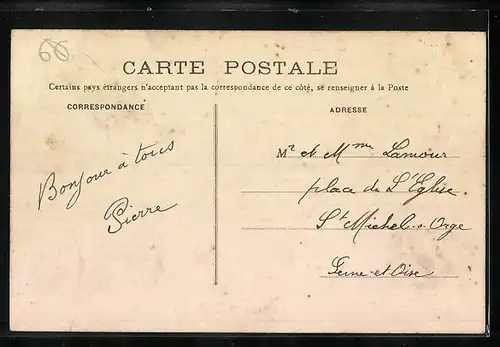 60
CARTE POSTALE
Certains pays étrangers n'acceptant pas la correspondance de ce côté, se renseigner à la Poste
CORRESPONDANCE
Bonjour à tous
Pierre
ADRESSE
Mr et Mme Lamour
place de L'Eglise.
St Michel-s-Orge
Seine-et-Oise